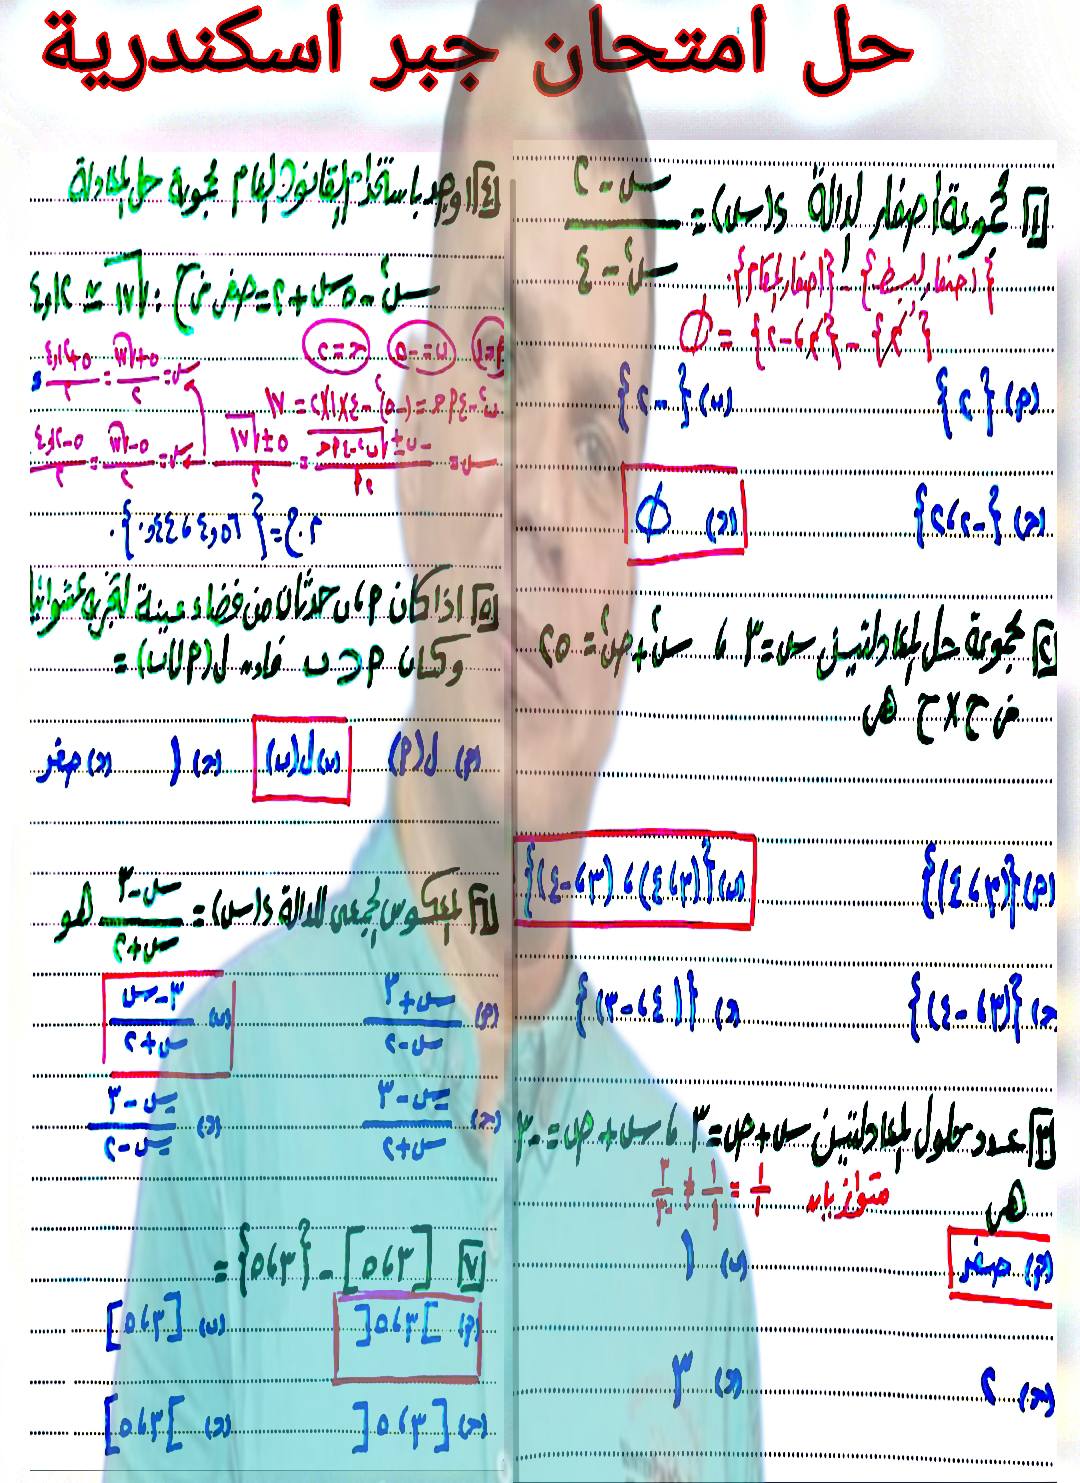 حل امتحان جبر اسكندرية
[١] مجموعة أصفار الدالة د(س) = (س - ٢) / (س٢ - ٤)
{أصفار البسط} - {أصفار المقام}
{٢} - {٢ ، -٢} = Φ
(أ) {٢} (ب) {-٢}
(ج) {-٢ ، ٢} (د) Φ
[٢] مجموعة حل المعادلتين س = ٣ ، س٢ + ص٢ = ٢٥
في ح × ح هى
(أ) {(٣ ، ٤)} (ب) {(٣ ، ٤) ، (٣ ، -٤)}
(ج) {(٣ ، -٤)} (د) {(٤ ، -٣)}
[٣] عدد حلول المعادلتين س + ص = ٣ ، س + ص = -٣
هى
متوازيان ١/١ = ١/١ ≠ ٣/-٣
(أ) صفر (ب) ١
(ج) ٢ (د) ٣
[٤] أوجد باستخدام القانون العام مجموعة حل المعادلة
س٢ - ٥س + ٢ = صفر في ح ، √١٧ ≃ ٤,١٢
أ = ١ ب = -٥ ج = ٢
ب٢ - ٤أج = (-٥)٢ - ٤×١×٢ = ١٧
س = (-ب ± √(ب٢ - ٤أج)) / ٢أ = (٥ ± √١٧) / ٢
س = (٥ + √١٧) / ٢ = (٥ + ٤,١٢) / ٢
س = (٥ - √١٧) / ٢ = (٥ - ٤,١٢) / ٢
م.ح = {٤,٥٦ ، ٠,٤٤}
[٥] إذا كان أ ، ب حدثان من فضاء عينة لتجربة عشوائية
وكان أ ⊂ ب فإن ل(أ ∪ ب) =
(أ) ل(أ) (ب) ل(ب) (ج) ١ (د) صفر
[٦] المعكوس الجمعى للدالة د(س) = (س - ٣) / (س + ٢) هو
(أ) (س + ٣) / (س - ٢) (ب) (٣ - س) / (س + ٢)
(ج) (س - ٣) / (س + ٢) (د) (س - ٣) / (س - ٢)
[٧] [٣ ، ٥] - {٣ ، ٥} =
(أ) ]٣ ، ٥[ (ب) [٣ ، ٥]
(ج) [٣ ، ٥[ (د) ]٣ ، ٥]